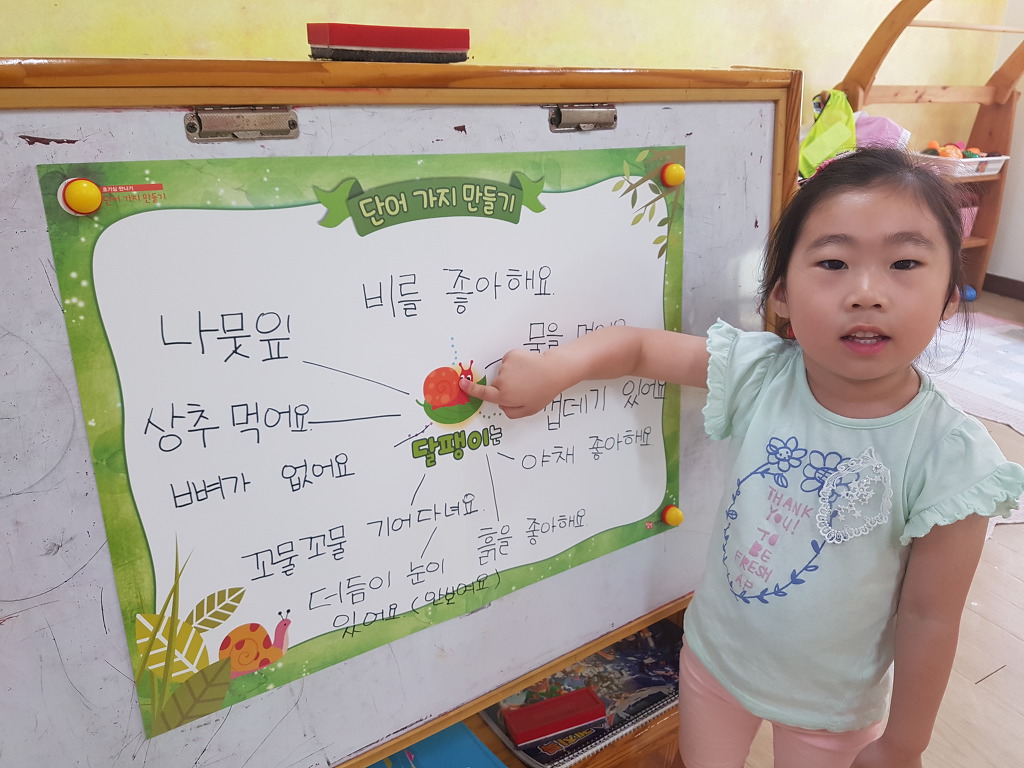 단어 가지 만들기
단어 가지 만들기
비를 좋아해요.
나뭇잎
물을
상추 먹어요
껍데기 있어요
달팽이는
야채 좋아해요
뼈가 없어요
꼬물꼬물 기어다녀요.
흙을 좋아해요.
더듬이 눈이
있어요 (안보여요)
THANK
YOU!
TO BE
FRESH